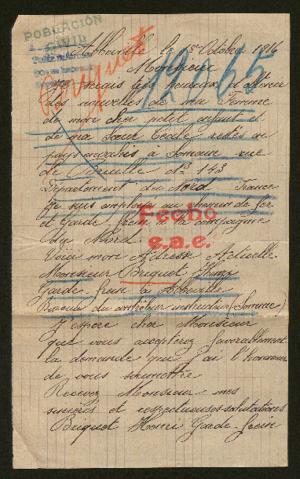 POBLACIÓN
CIVIL
Briquet
Abbeville le 15 Octobre 1916
Monsieur
12065
je serais très heureux d'obtenir
des nouvelles de ma femme
de mon cher petit enfant et
de ma sœur Cécile restés en
pays envahis à Somain rue
de n° 143
Département du Nord France
Je suis employé au chemin de fer
et Garde frein à la compagnie
du Nord
Fecho
e.a.e.
Voici mon Adresse Actuelle
Monsieur Briquet Henri
Garde frein à Abbeville
Bureau du contrôleur (Somme)
J'espère cher Monsieur
que vous accepterez favorablement
la demande que j'ai l'honneur
de vous soumettre
Recevez Monsieur mes
sincères et respectueuses salutations
Briquet Henri Garde-frein